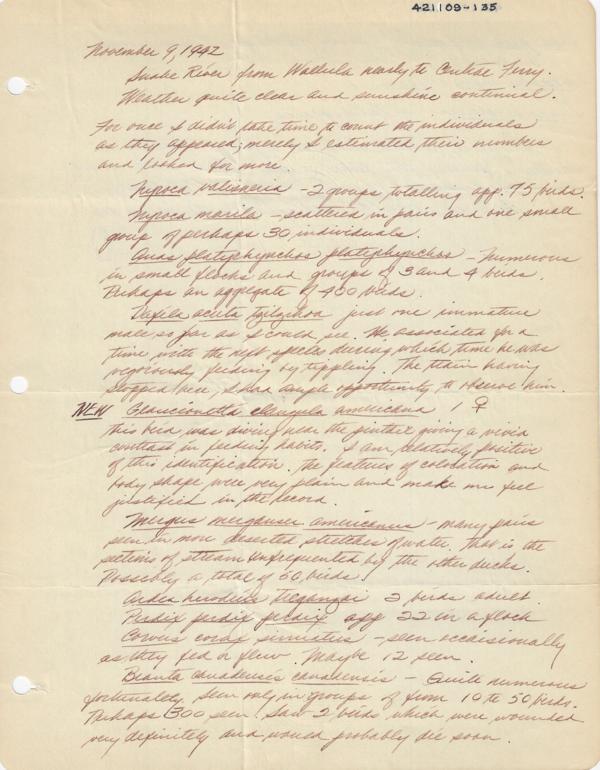 421109-135
November 9, 1942
Snake River from Wallula nearly to Central Ferry.
Weather quite clear and sunshine continual.
For once I didn't take time to count the individuals
as they appeared; merely I estimated their numbers
and looked for more.
Nyroca valisneria - 2 groups totalling app. 75 birds.
Nyroca marila - scattered in pairs and one small
group of perhaps 30 individuals.
Anas platyrhynchos platyrhynchos - Numerous
in small flocks and groups of 3 and 4 birds.
Perhaps an aggregate of 400 birds.
Dafila acuta tzitzihoa just one immature
male, so far as I could see. He associated for a
time with the next species during which time he was
vigorously feeding by tippling. The train having
stopped here, I had ample opportunity to observe him.
NEW Glaucionetta clangula americana 1 ♀
this bird was diving near the pintail giving a vivid
contrast in feeding habits. I am relatively positive
of this identification. The features of coloration and
body shape were very plain and make me feel
justified in the record.
Mergus merganser americanus - many pairs
seen in more deserted stretches of water. That is the
sections of stream unfrequented by the other ducks.
Possibly a total of 50 birds.
Ardea herodias treganzai 2 birds adult.
Perdix perdix perdix app 22 in a flock
Corvus corax sinuatus - seen occaisionally
as they fed or flew. Maybe 12 seen.
Branta canadensis canadensis - Quite numerous
fortunately seen only in groups of from 10 to 50 birds.
Perhaps 300 seen. Saw 2 birds which were wounded
very definitely and would probably die soon.